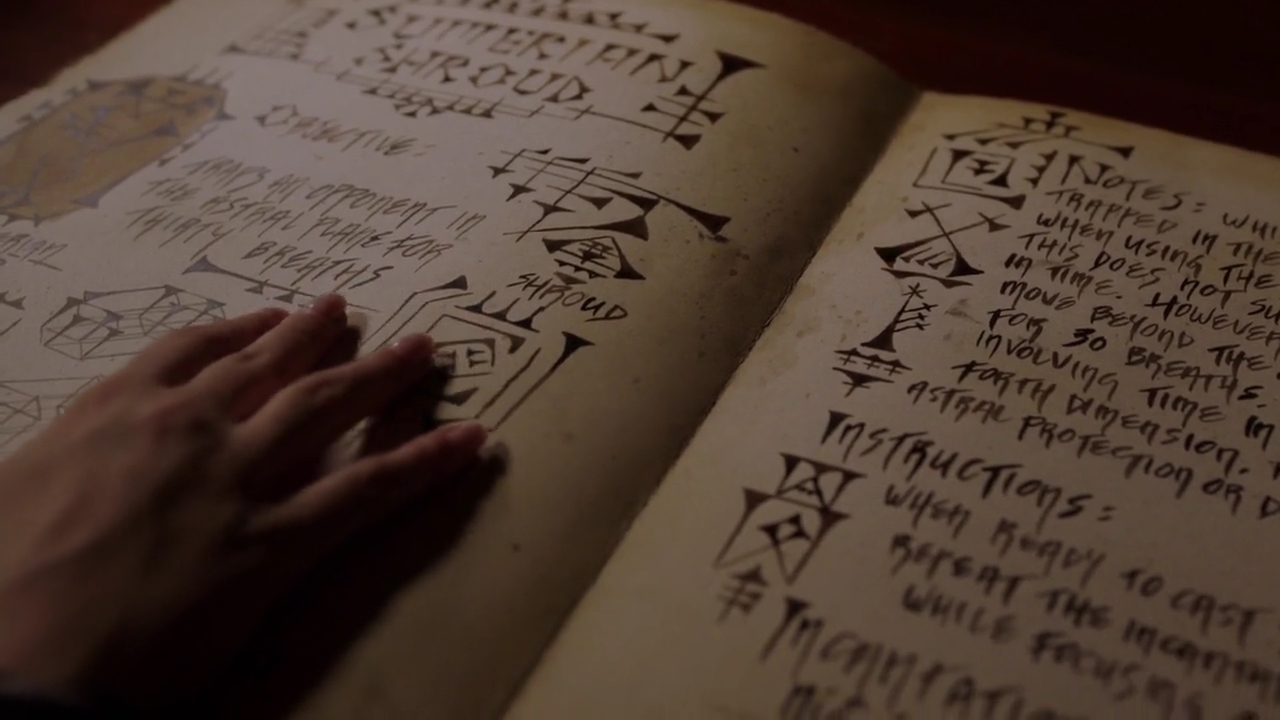 SUTTERIAN
SHROUD
OBJECTIVE:
TRAPS AN OPPONENT IN
THE ASTRAL PLANE FOR
THIRTY BREATHS
SHROUD
NOTES: WHI
TRAPPED IN THE
WHEN USING THE
THIS DOES NOT SU
IN TIME. HOWEVER
MOVE BEYOND THE
FOR 30 BREATHS.
INVOLVING TIME IN
FORTH DIMENSION.
ASTRAL PROTECTION OR D
INSTRUCTIONS:
WHEN READY TO CAST
REPEAT THE INCANTA
WHILE FOCUSING
INCANTATIO